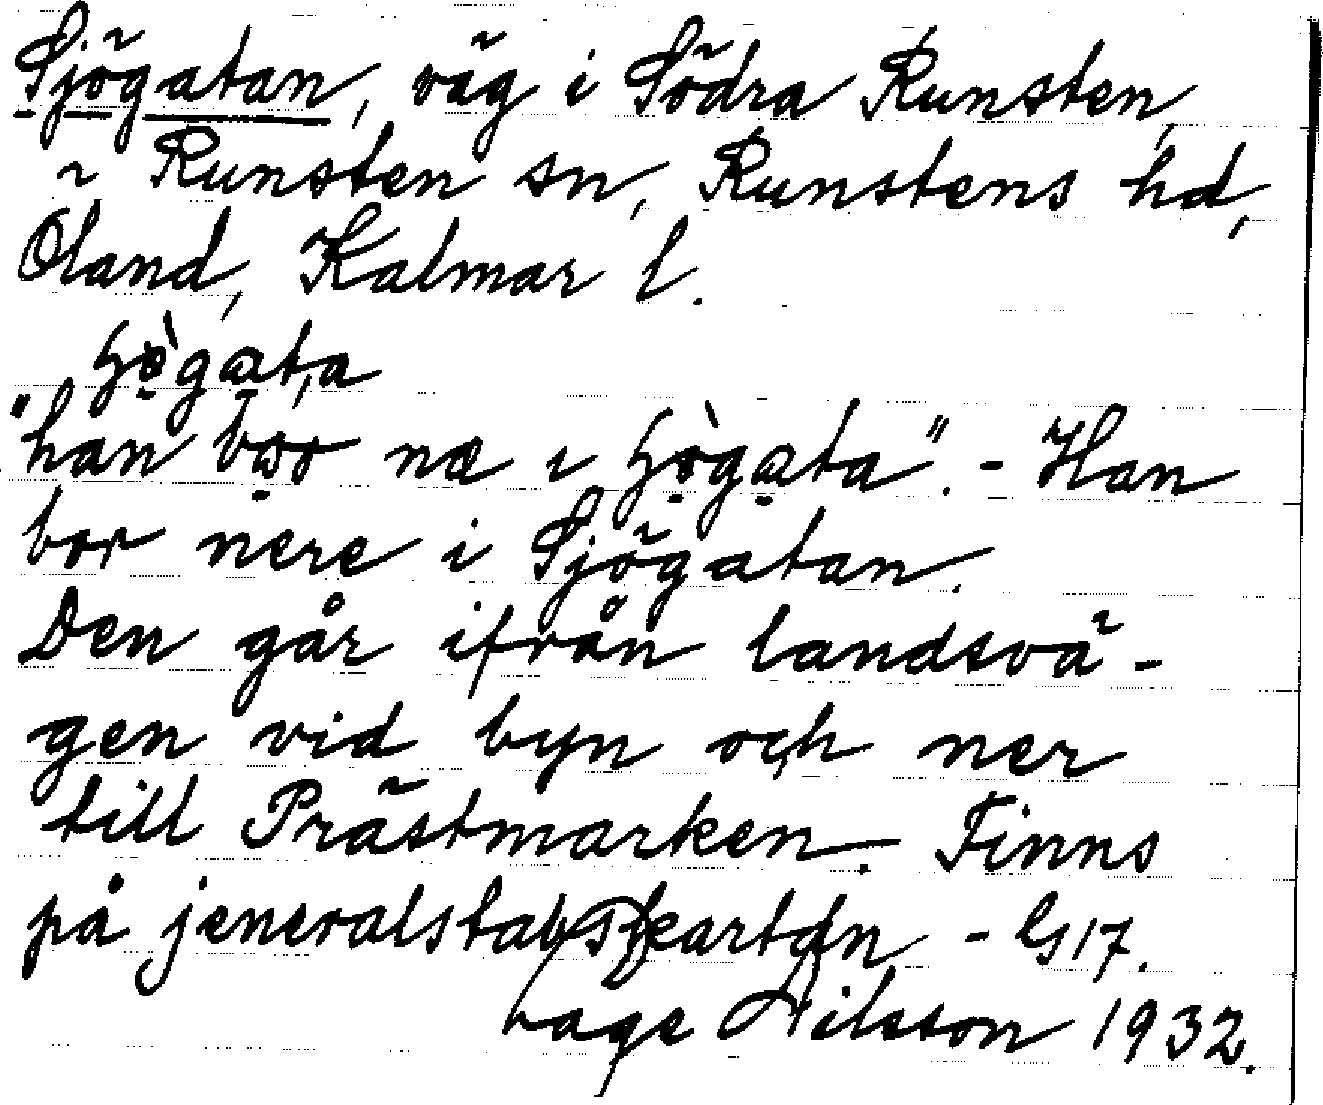 Sjögatan, väg i Södra Runsten,
i Runsten sn, Runstens hd,
Öland, Kalmar l.
"han
næ ı
". - Han
bor nere i Sjögatan.
Den går ifrån landsvä-
gen vid byn och ner
till Prästmarken. Finns
på jeneralstabskartan - G17.
Nilsson 1932.